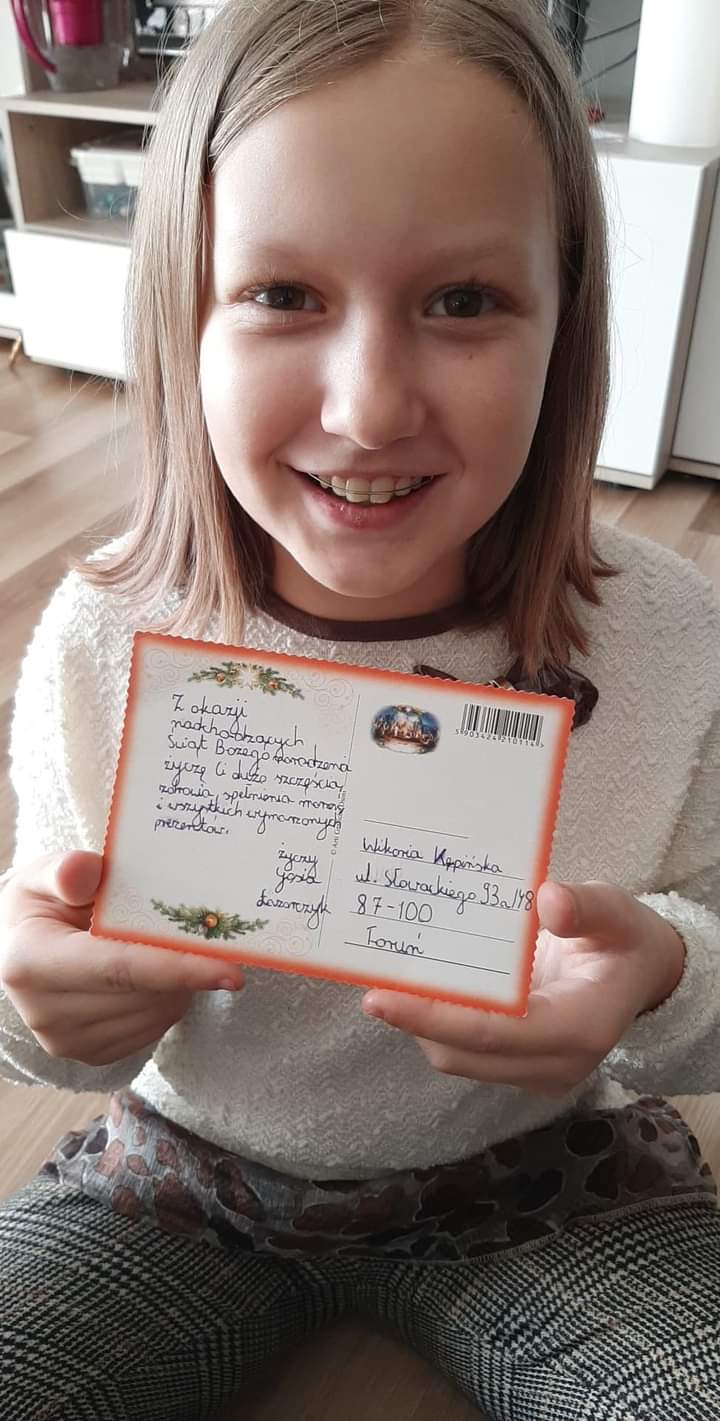 Z okazji
nadchodzących
Świąt Bożego Narodzenia
życzę Ci dużo szczęścia,
zdrowia, spełnienia marzeń
i wszystkich wymarzonych
prezentów.
życzy
Gosia
5 903424 210114 >
Wikoria Kępińska
ul. Słowackiego 93a/48
87-100
Toruń